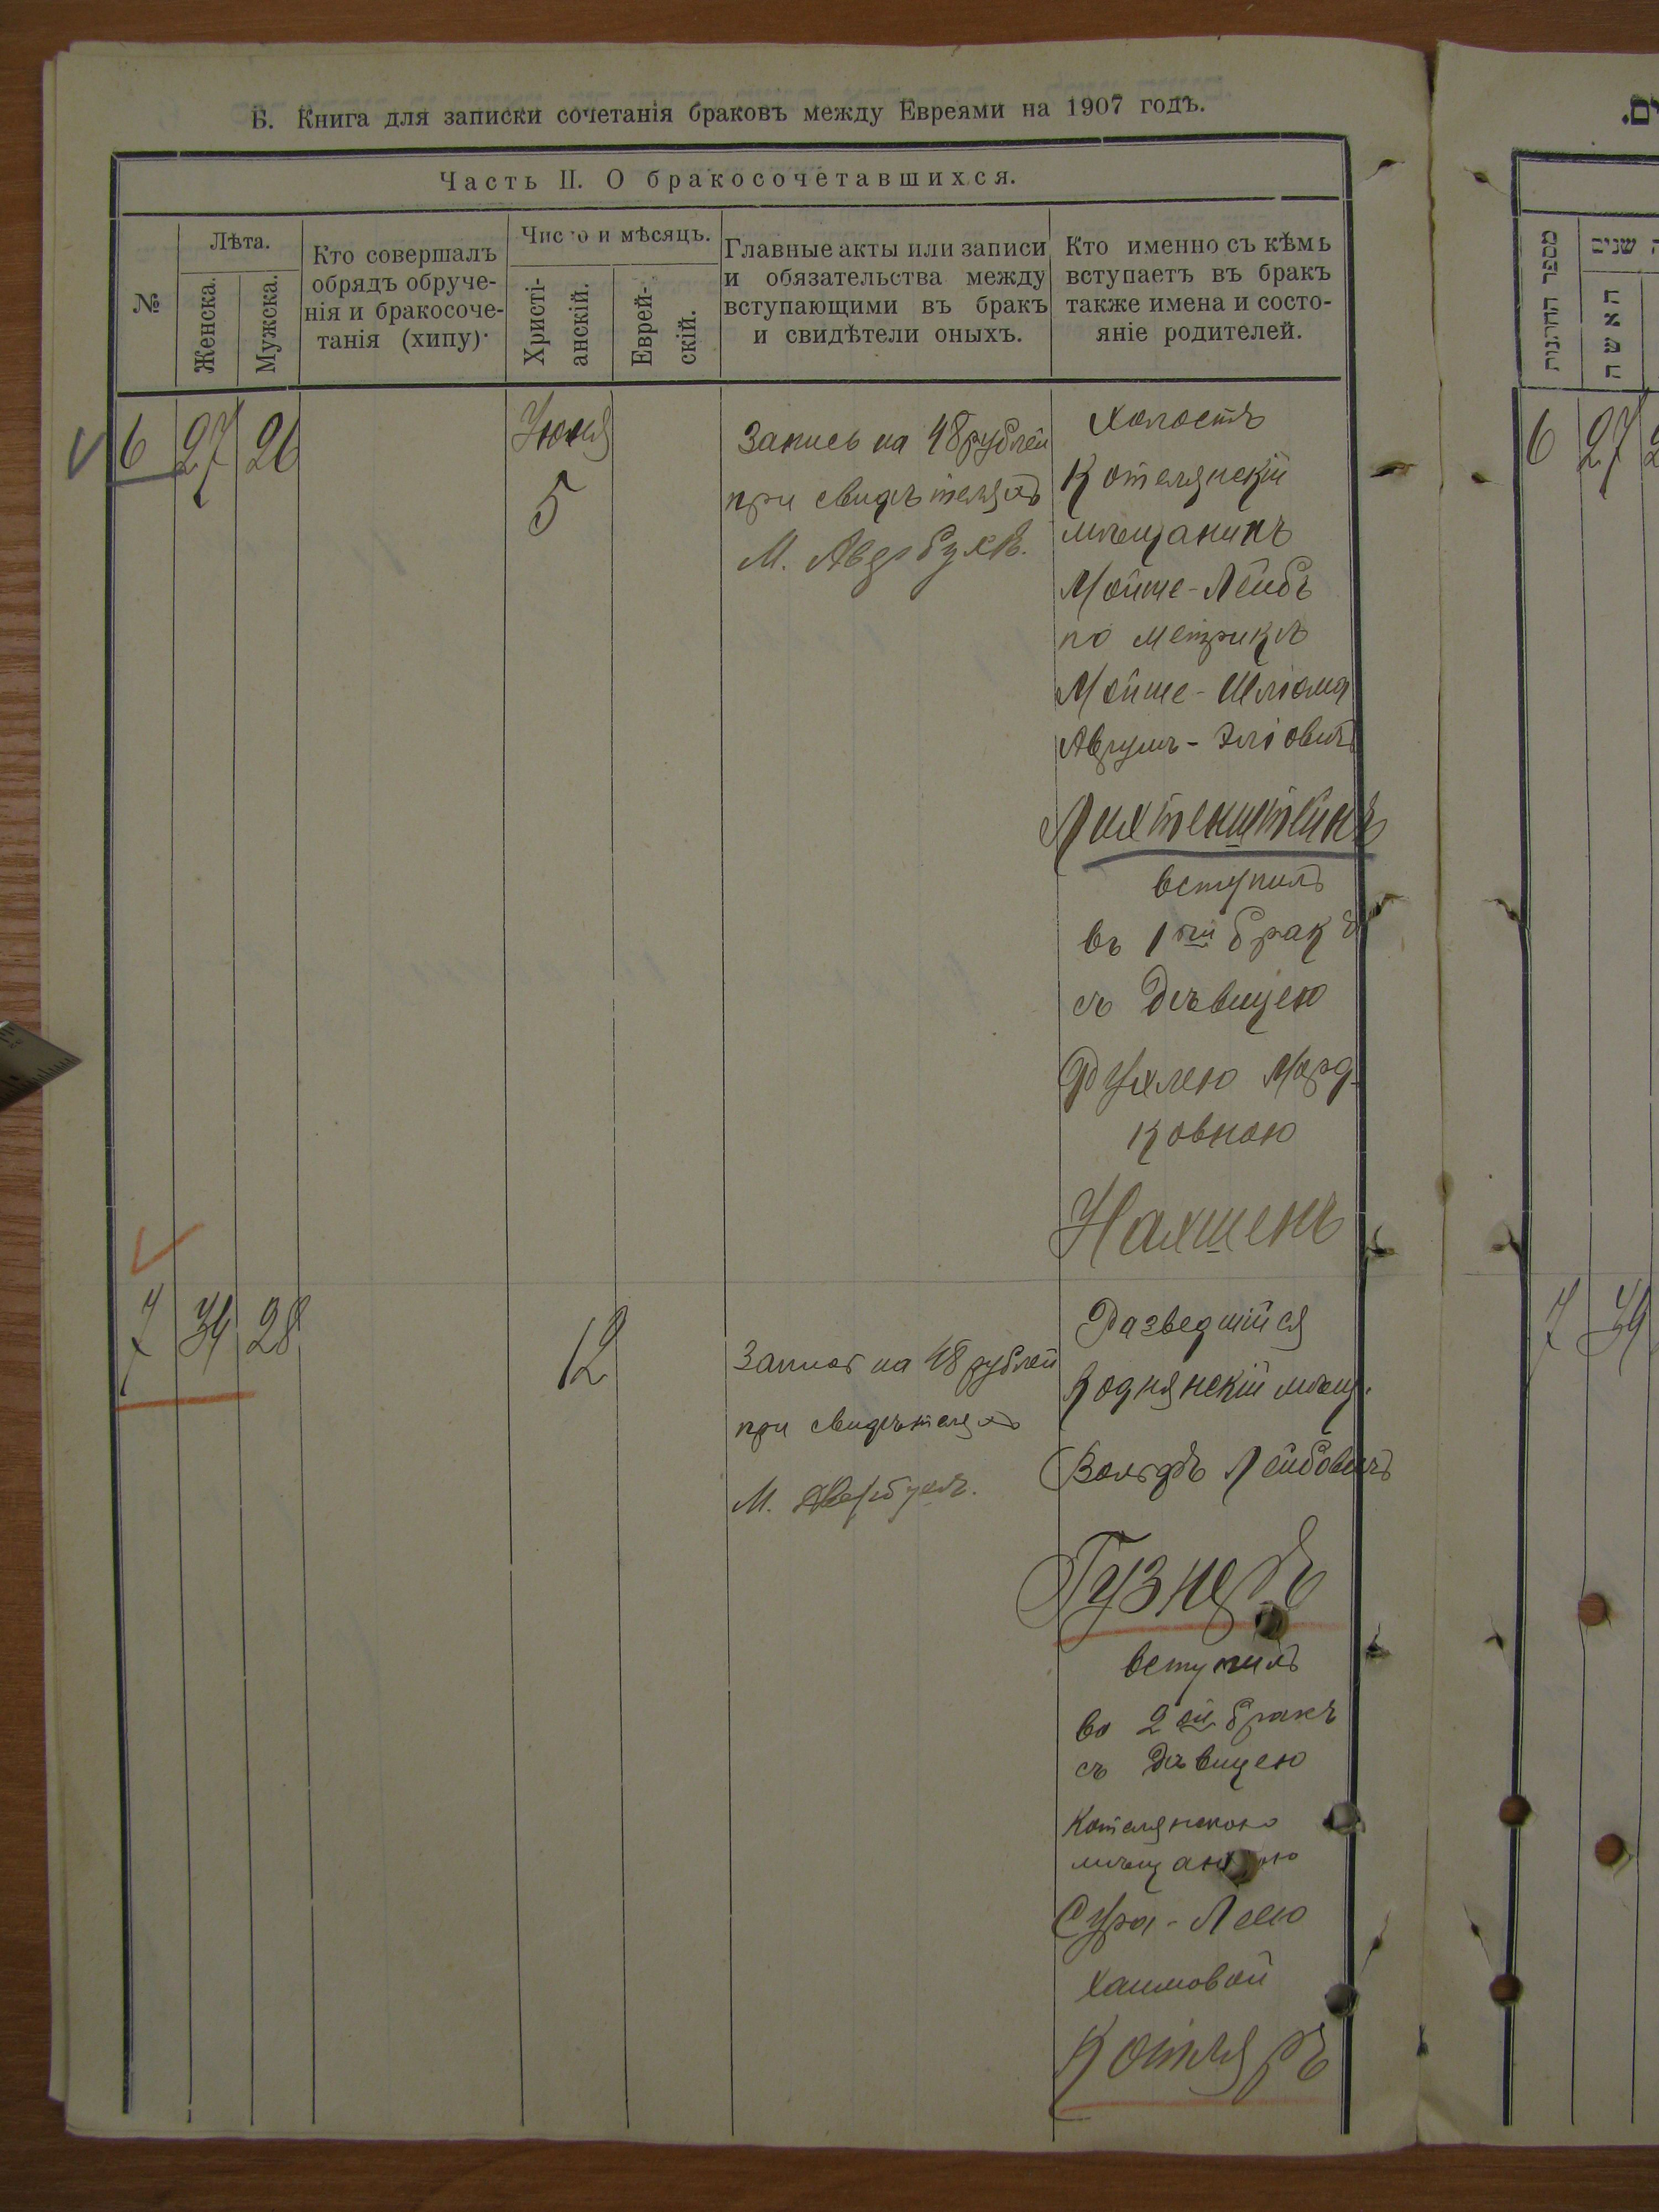 Б. Книга для записки сочетанія браковъ между Евреями на 1907 годъ.
Часть II. О бракосочетавшихся.
№
Лѣта.
Женска.
Мужска.
Кто совершалъ
обрядъ обруче-
нія и бракосоче-
танія (хипу).
Число и мѣсяцъ.
Христі-
анскій.
Еврей-
скій.
Главные акты или записи
и обязательства между
вступающими въ бракъ
и свидѣтели оныхъ.
Кто именно съ кѣмъ
вступаетъ въ бракъ
также имена и состо-
яніе родителей.
6 27 26
Іюня
5
Запись на 48 рублей
при свидѣтеляхъ
М. Авербухъ.
Холостъ
Котелянскій
мѣщанинъ
Мойше-Лейбъ
по метрикѣ
Мойше-Шліома
Аврумъ-Эліовичъ
Лихтенштейнъ
вступилъ
въ 1ый бракъ
съ Дѣвицею
Рухлею Морд-
ковною
Нахшенъ
7 34 28
12
Запись на 48 рублей
при свидѣтеляхъ
М. Авербухъ.
Разведшійся
Коднянскій мѣщ.
Вольфъ Лейбовичъ
вступилъ
во 2ой бракъ
съ Дѣвицею
Котелянскою
мѣщанкою
Сура-Леею
Хаимовой
Котляръ
מספר החתונות
שנים
האשה
6 27
7 34